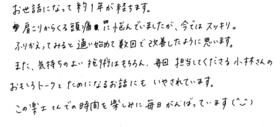 お世話になって約1年が経ちます。
肩こりからくる頭痛に悩んでいましたが、今ではスッキリ。
ふりかえってみると通い始めて数回で改善したように思います。
また、気持ちのよい施術はもちろん、毎回担当してくださる小林さんの
おもしろトークとためになるお話にもいやされています。
この楽士してんでの時間を楽しみに毎日がんばっています(^-^)